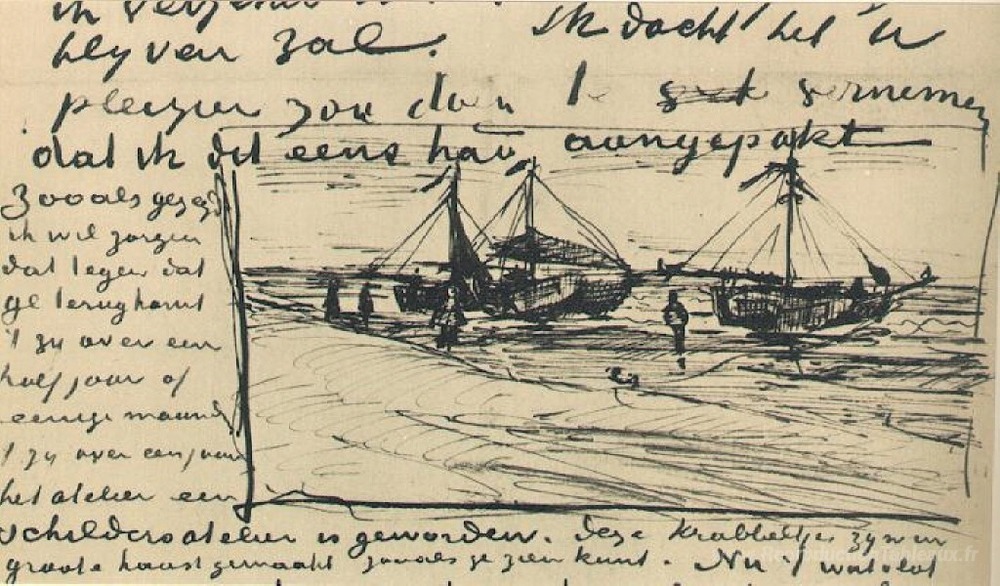 ik
blyven zal. Ik dacht het U
pleizier zou doen te vernemen
dat ik dit eens had aangepakt
Zooals gezegd
ik wil zorgen
dat tegen dat
ge terugkomt
't zy over een
half jaar of
eenige maanden
't zy over een jaar
het atelier een
schildersatelier is geworden. Deze krabbeltjes zyn in
groote haast gemaakt zooals ge zien kunt. Nu